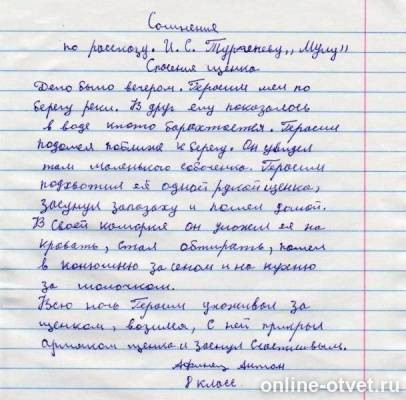 Сочинения
по рассказу. И. С. Тургеневу,, Муму"
Спасения щенка
Дело было вечером. Герасим шел по
берегу реки. В друг ему показалось
в воде кто-то барахтается. Герасим
подошел поближе к берегу. Он увидел
там маленького собаченка. Герасим
подхватил её одной рукой щенка,
засунул запазаху и пошел домой.
В Своей каморке он уложил ея на
кровать, стал обтирать, пошел
в конюшню за сеном и на кухню
за молочком.
Всю ночь Герасим ухоживал за
щенком, возился, с ней прикрыл
армяком щенка и заснул Счастливым.
Антон
8 класс.
online-otvet.ru